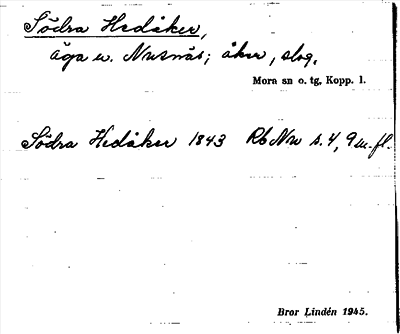 Södra Hedåker,
äga u. Nusnäs; åker, slog.
Mora sn o. tg, Kopp. l.
Södra Hedåker 1843 Rb Nm s. 4, 9 m. fl.
Bror Lindén 1945.